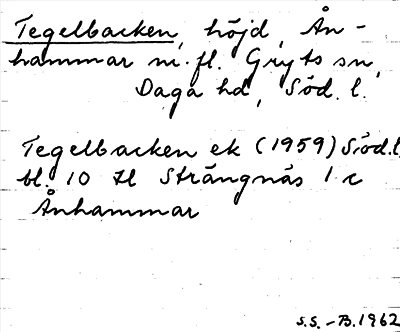 Tegelbacken, höjd, Ån-
hammar m.fl. Gryts sn,
Daga hd, Söd. l.
Tegelbacken ek (1959) Söd.l.
bl. 10 Il Strängnäs 1 c
Ånhammar
S.S. - B. 1962